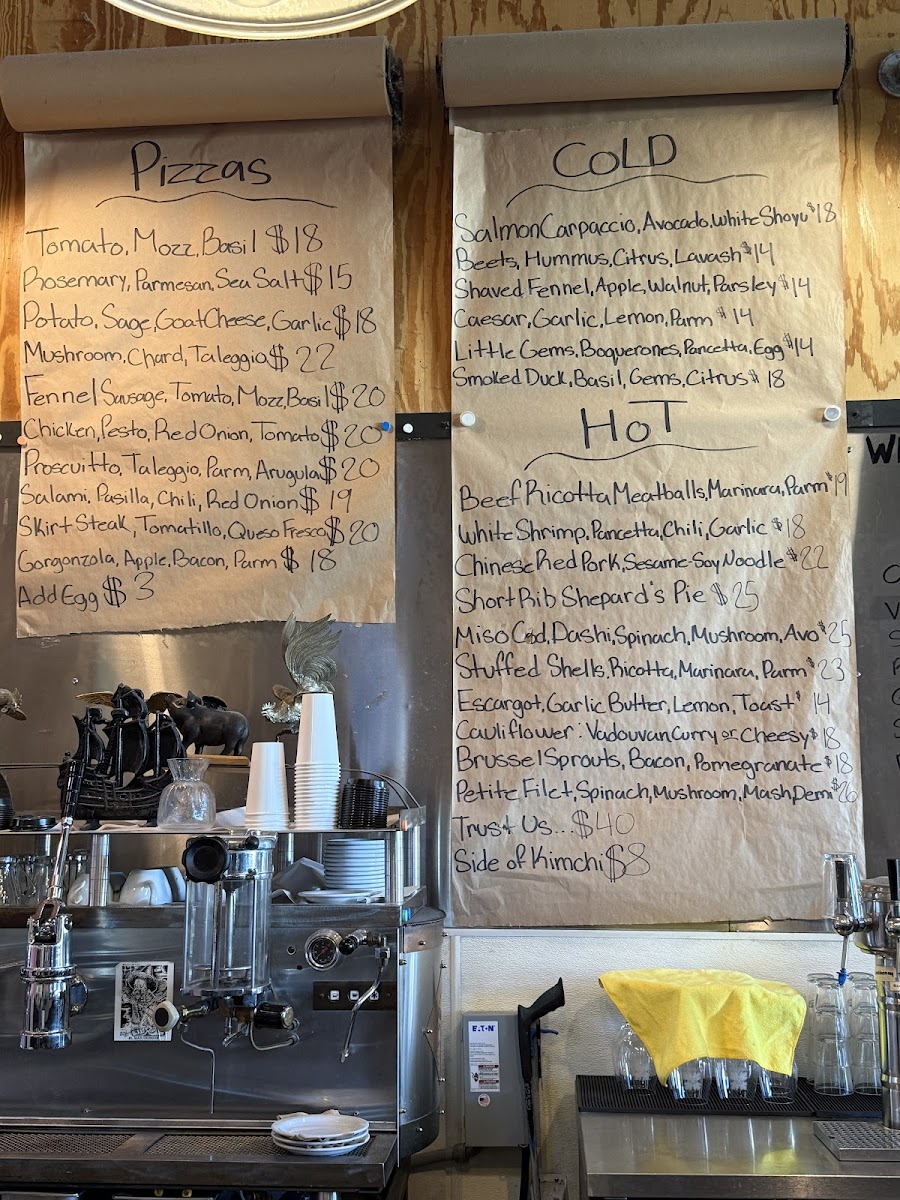 Pizzas
Tomato, Mozz, Basil $18
Rosemary, Parmesan, Sea Salt $15
Potato, Sage, Goat Cheese, Garlic $18
Mushroom, Chard, Taleggio $22
Fennel Sausage, Tomato, Mozz, Basil $20
Chicken, Pesto, Red Onion, Tomato $20
Proscuitto, Taleggio, Parm, Arugula $20
Salami, Pasilla, Chili, Red Onion $19
Skirt Steak, Tomatillo, Queso Fresco $20
Gorgonzola, Apple, Bacon, Parm $18
Add Egg $3
COLD
Salmon Carpaccio, Avocado, White Shoyu $18
Beets, Hummus, Citrus, Lavash $14
Shaved Fennel, Apple, Walnut, Parsley $14
Caesar, Garlic, Lemon, Parm $14
Little Gems, Boquerones, Pancetta, Egg $14
Smoked Duck, Basil, Gems, Citrus $18
HOT
Beef Ricotta Meatballs, Marinara, Parm $19
White Shrimp, Pancetta, Chili, Garlic $18
Chinese Red Pork, Sesame-Soy Noodle $22
Short Rib Shepard's Pie $25
Miso Cod, Dashi, Spinach, Mushroom, Avo $25
Stuffed Shells, Ricotta, Marinara, Parm $23
Escargot, Garlic Butter, Lemon, Toast $14
Cauliflower: Vadouvan Curry or Cheesy $18
Brussel Sprouts, Bacon, Pomegranate $18
Petite Filet, Spinach, Mushroom, Mash, Demi $26
Trust Us... $40
Side of Kimchi $8
EATON